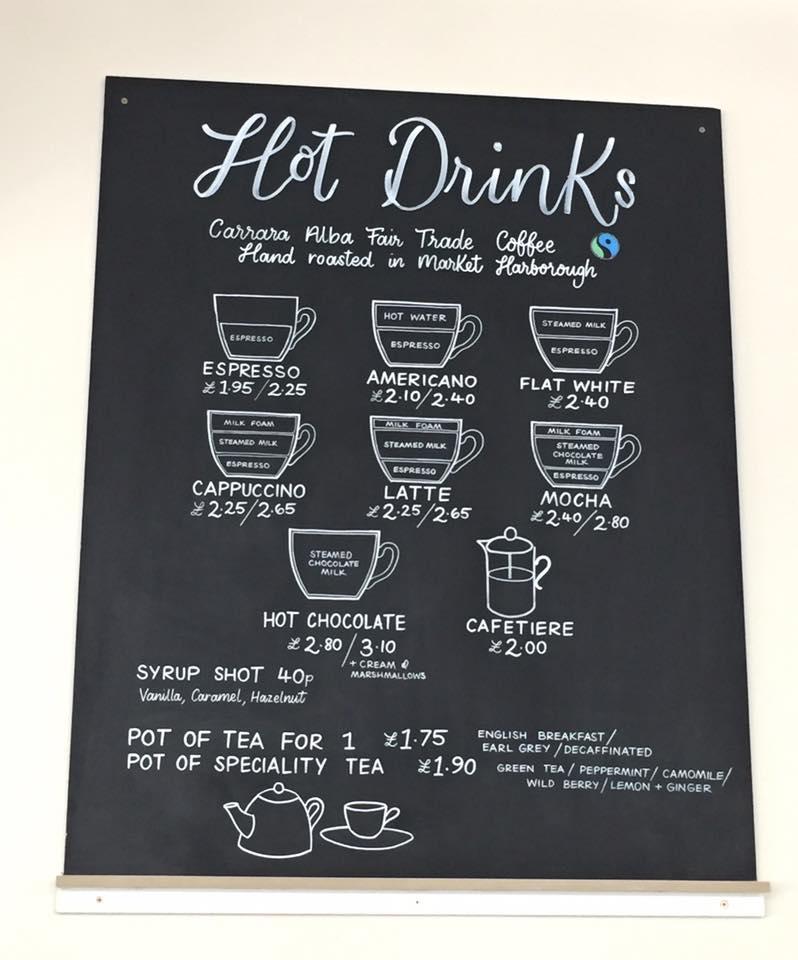 Hot Drinks
Carrara Alba Fair Trade Coffee
Hand roasted in Market Harborough
ESPRESSO
ESPRESSO
£1.95/2.25
HOT WATER
ESPRESSO
AMERICANO
£2.10/2.40
STEAMED MILK
ESPRESSO
FLAT WHITE
£2.40
MILK FOAM
STEAMED MILK
ESPRESSO
CAPPUCCINO
£2.25/2.65
MILK FOAM
STEAMED MILK
ESPRESSO
LATTE
£2.25/2.65
MILK FOAM
STEAMED
CHOCOLATE
MILK
ESPRESSO
MOCHA
£2.40/2.80
STEAMED
CHOCOLATE
MILK
HOT CHOCOLATE
£2.80/3.10
+ CREAM &
MARSHMALLOWS
CAFETIERE
£2.00
SYRUP SHOT 40p
Vanilla, Caramel, Hazelnut
POT OF TEA FOR 1 £1.75
ENGLISH BREAKFAST/
EARL GREY/DECAFFINATED
POT OF SPECIALITY TEA £1.90
GREEN TEA/PEPPERMINT/CAMOMILE/
WILD BERRY/LEMON + GINGER